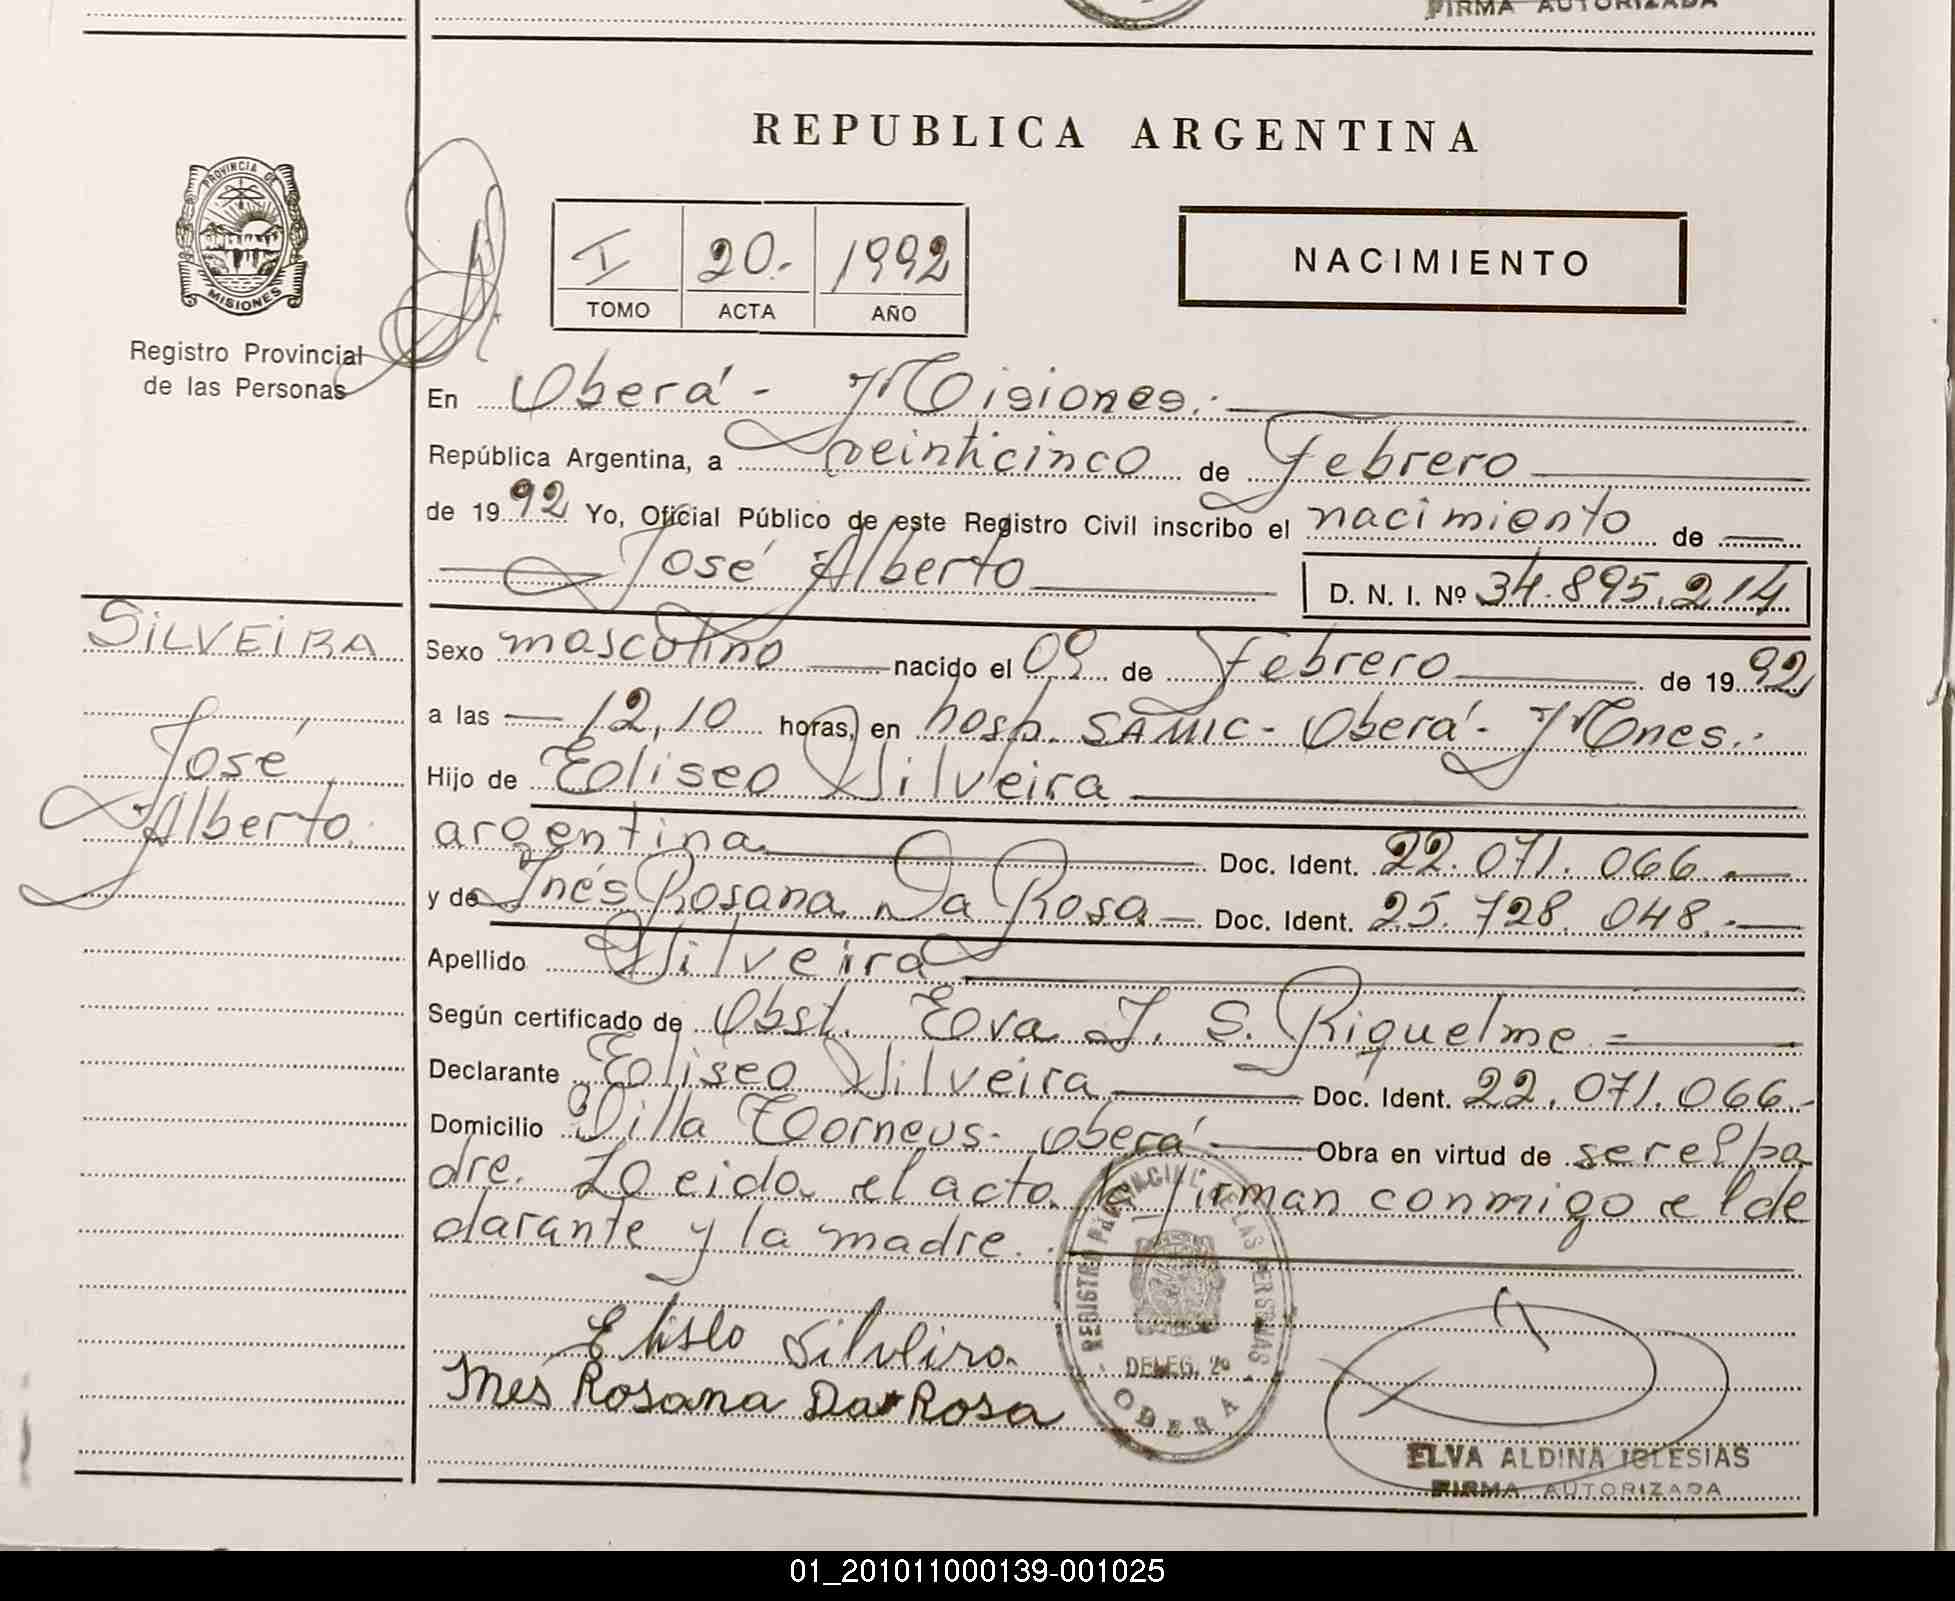 FIRMA AUTORIZADA
REPUBLICA ARGENTINA
PROVINCIA DE
MISIONES
Registro Provincial
de las Personas
I 20.- 1992
TOMO ACTA AÑO
NACIMIENTO
En Oberá - Misiones.-
República Argentina, a veinticinco de Febrero
de 1992 Yo, Oficial Público de este Registro Civil inscribo el nacimiento de
José Alberto D. N. I. Nº 34.895.214
SILVEIRA
José
Alberto.
Sexo masculino nacido el 09 de Febrero de 1992
a las 12,10 horas, en hosp. SAMIC - Oberá - Mnes.-
Hijo de Eliseo Silveira
argentina Doc. Ident. 22.071.066.-
y de Inés Rosana Da Rosa Doc. Ident. 25.728.048.-
Apellido Silveira
Según certificado de Obst. Eva J. S. Riquelme.-
Declarante Eliseo Silveira Doc. Ident. 22.071.066.-
Domicilio Villa Torneus - Oberá Obra en virtud de ser el pa
dre. Leeida el acta la firman conmigo el de
clarante y la madre.
Eliseo Silveira
Inés Rosana Da Rosa
REGISTRO PROVINCIAL DE LAS PERSONAS
DELEG. 2º
OBERA
ELVA ALDINA IGLESIAS
FIRMA AUTORIZADA
01_201011000139-001025